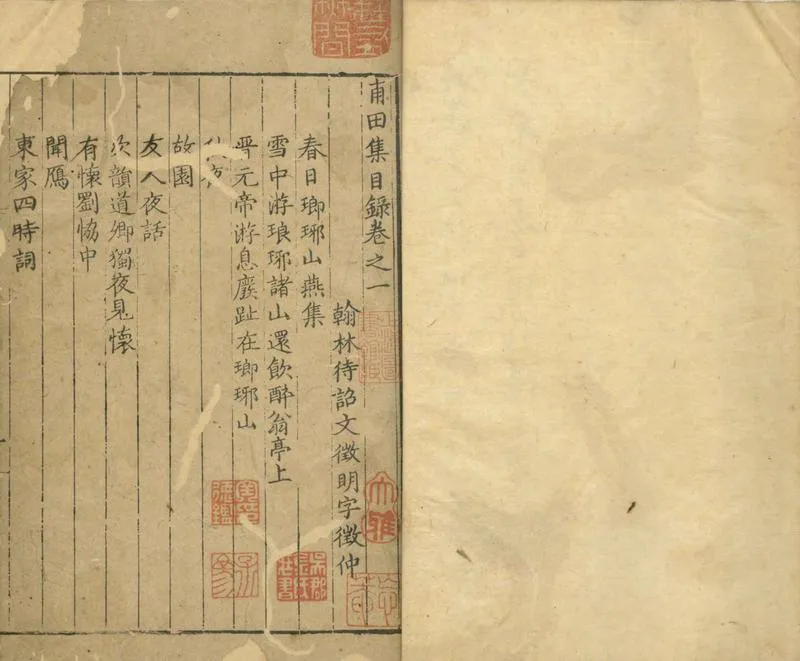 甫田集目錄卷之一
翰林待詔文徵明字徵仲
春日瑯琊山燕集
雪中游琅琊諸山還飲醉翁亭上
晉元帝游息廢趾在瑯琊山
夜
故園
友人夜話
次韻道卿獨夜見懷
有懷劉協中
聞鴈
東家四時詞
大雅